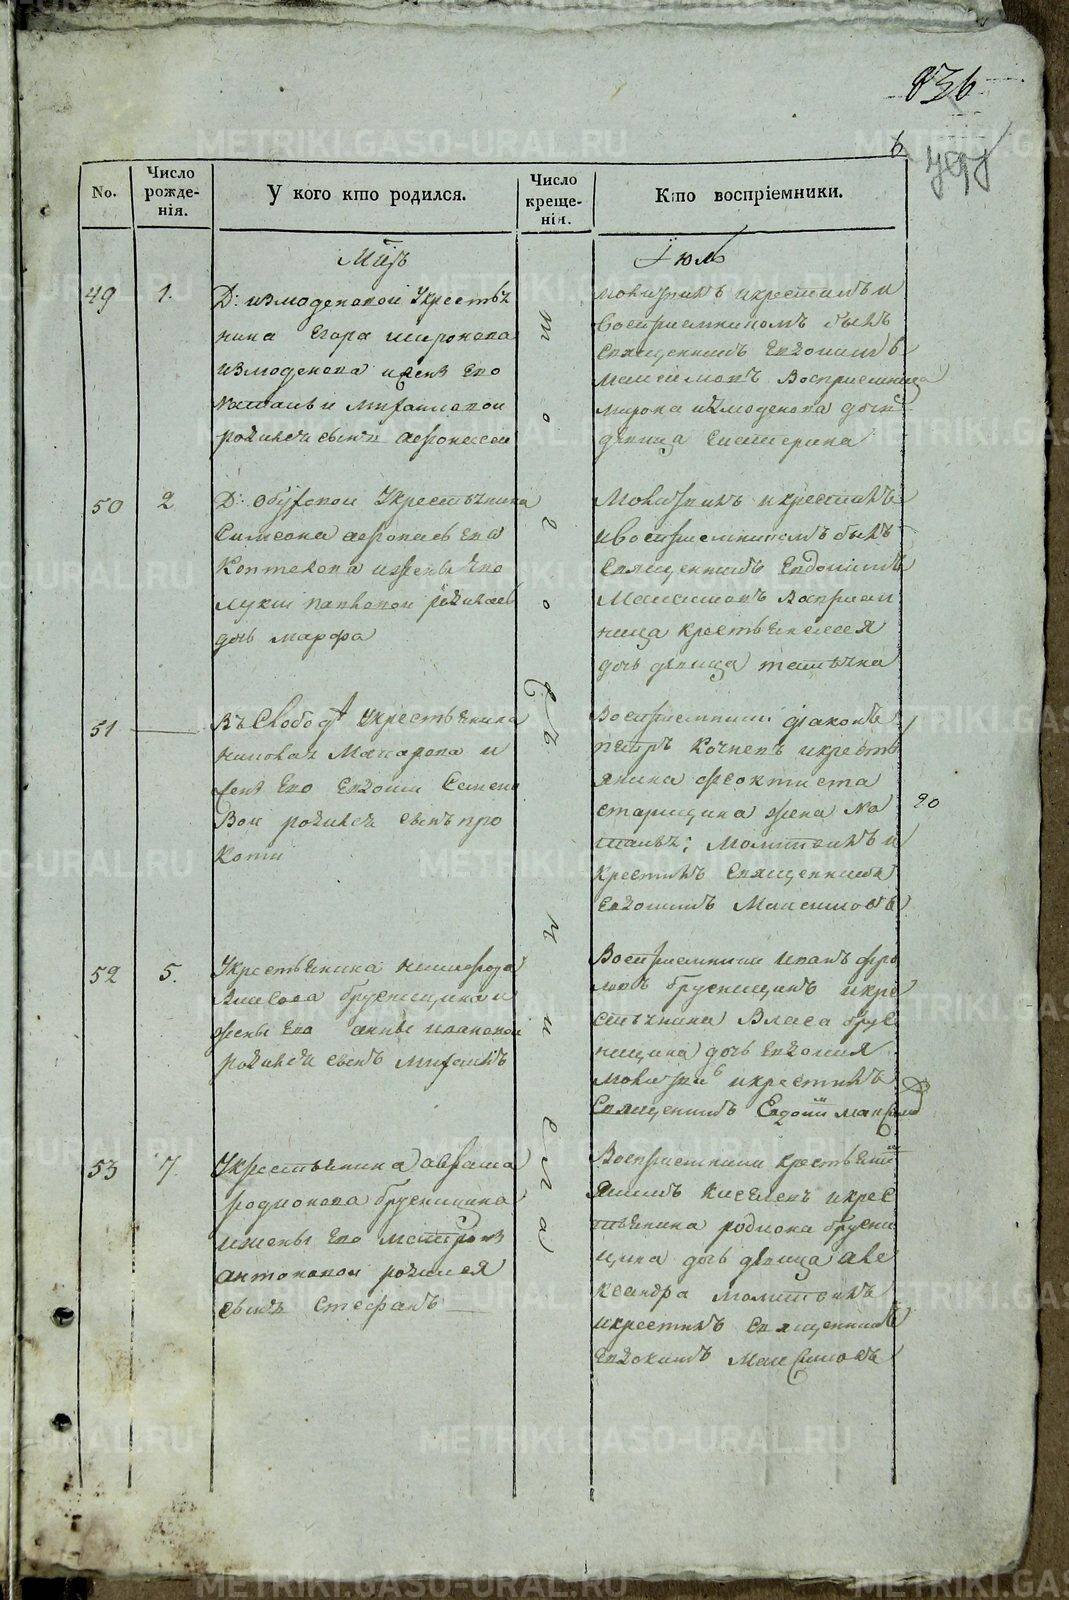 836
6
No.
Число рожде-нія.
У кого кто родился.
Число креще-нія.
Кто воспріемники.
Июль
49
1.
Д: измоденовой Укрестья
нина Егора миронова
измоденова ижены Его
родился сынъ афонасей
молитвилъ икрестилъ и
Воспрiемникомъ былъ
священникъ Евдокимъ
Максимовъ Воспрiемница
мирона измоденова дочь
девица Екатерина
50
2
Укрестьянина
Симеона афонасьева
Коптелова ижены Его
родилась
дочь марфа
Молитвилъ икрестилъ
иВоспрiемникомъ былъ
священникъ Евдокимъ
Максимовъ Воспрiем
ница
дочь девица татьяна
51
Въ Слободе Укрестьянина
Макарова и
жены Его Евдокии Семено
Вои родился сынъ про
копи
Воспрiемники дiаконъ
петръ Кочневъ икресть
янина феоктиста
старицина жена На
талья; Молитвилъ и
крестилъ священникъ
Евдокимъ Максимовъ
20
52
5.
Укрестьянина никифора
Власова брусницина и
жены Его анны ивановой
родился сынъ михаилъ
Воспрiемники иванъ фро
ловъ брусницинъ икре
стьянина Власа брус
ницина дочь Евдокия
молитвилъ икрестилъ
священникъ Евдокимъ Максимовъ
53
7.
Укрестьянина аврама
родионова брусницина
ижены Его матроны
антоновой родился
сынъ стефанъ
Воспрiемники крестьянинъ
Киселевъ икрес
тьянина родиона брусни
цина дочь девица але
ксандра молитвилъ
икрестилъ священникъ
Евдокимъ Максимовъ
того жъ числа
METRIKI.GASO-URAL.RU